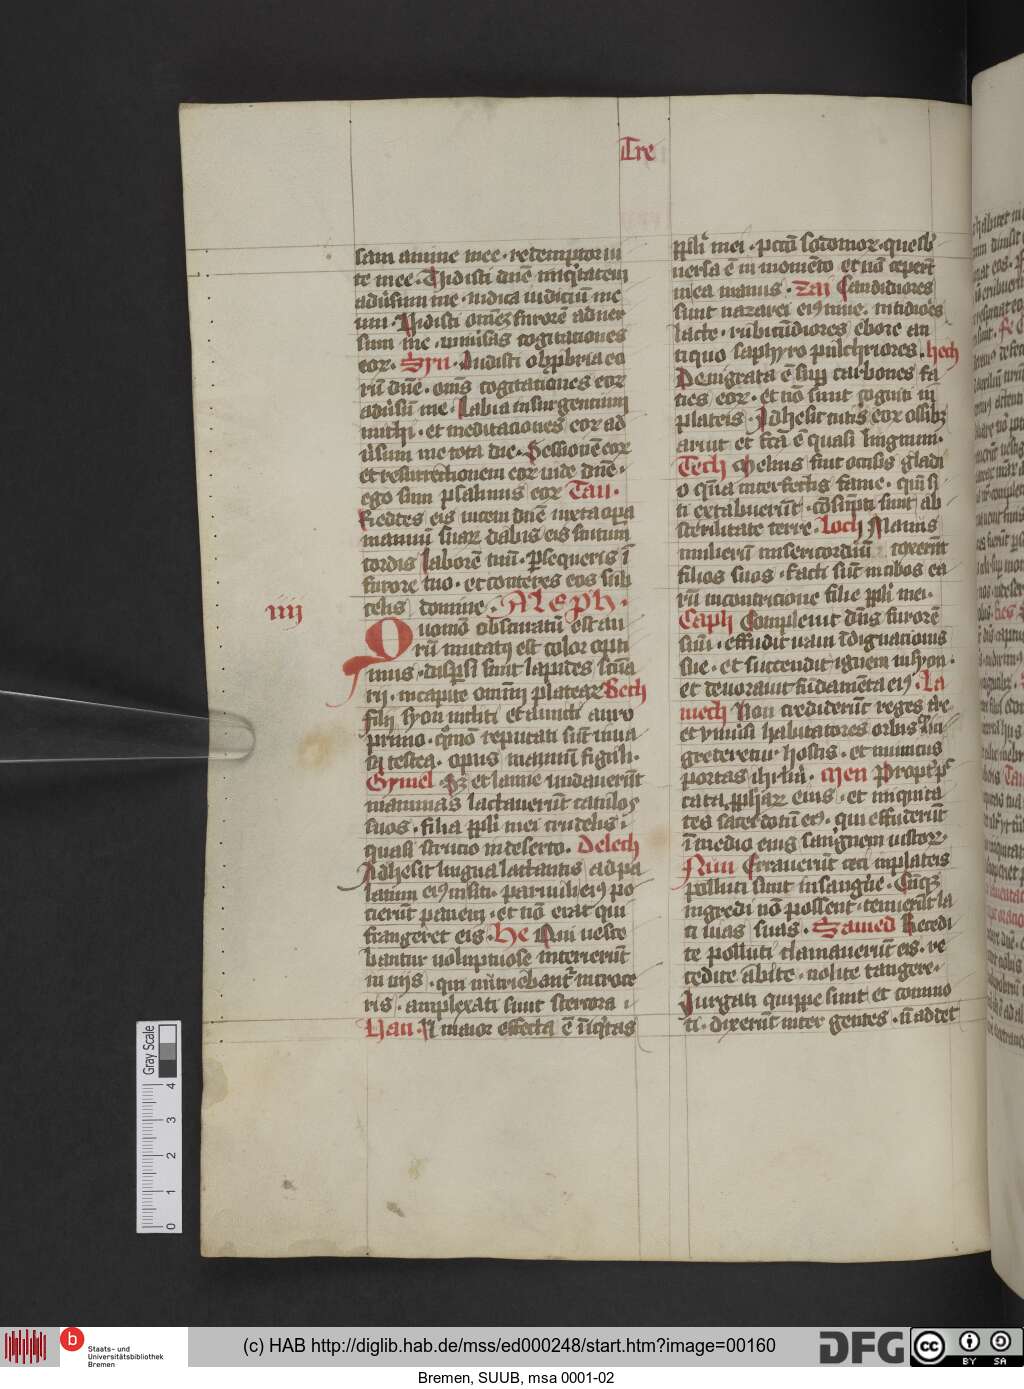 Tre
sam anime mee · redemptor ui
te mee · Vidisti dn̄e iniq̄tatem
adūsum me · iudica iudiciū me
um · Vidisti om̄eȝ furorē aduer
sum me · uniūsas cogitationes
eoꝝ · Syn · Audisti obp̄bria eo
rū dn̄e · om̄s cogitationes eoꝝ
adūsū me · Labia insurgentium
michi · et meditaciones eoꝝ ad
ūsum me tota die · Sessionē eoꝝ
et resurrectionem eoꝝ uide dn̄e ·
ego sum psalmus eoꝝ Tau ·
Reddes eis uicem dn̄e iuxta opa
manuū suaꝝ dabis eis scutum
cordis laborē tuū · Ꝑsequeris ī
furore tuo · et conteres eos sub
celis domine · Aleph ·
iiij
Quomō obscuratū est au
rū mutatꝰ est color opti
mus · disꝑsi sunt lapides scūa
rij · in capite omniū plateaꝝ Beth
filij syon incliti et amicti auro
primo · qm̄o reputati sūt in ua
sa testea · opus manuū figuli ·
Gymel · Sȝ et lamie nudauerūt
mammas lactauerūt catulos
suos · filia ppl̄i mei crudelis ·
quasi strucio in deserto · Delech
Adhesit lingua lactantis ad pa
latum eiꝰ in siti · paruuli eiꝰ pe
cierūt panem · et nō erat qui
frangeret eis · He Qui uesce
bantur uoluptuose interierūt
in uijs · qui nūtriebantr̄ in croce
ris · amplexati sunt stercora ·
Uau · Et maior effecta ē īiq̄tas
ppl̄i mei · pctō sodomoꝝ · que sb̄
uersa ē in momēto et nō ceperūt
in ea manus · Zai Candidiores
sunt nazarei eiꝰ niue · nitidiores
lacte · rubicūdiores ebore an
tiquo saphyro pulchriores · hech
Denigrata ē sup carbones fa
cies eoꝝ · et nō sunt cogniti in
plateis · Adhesit cutis eoꝝ ossibȝ
aruit et fcā ē quasi lingnum ·
Tech Melius fuit occisis gladi
o q̄m interfectis fame · qm̄ is
ti extabuerūt · cōsūpti sunt ab
sterilitate terre · Ioch Manus
mulierū misericordiū coxerūt
filios suos · facti sūt in cibos ea
rū in contricione filie ppl̄i mei ·
Caph Compleuit dn̄s furorē
suū · effudit iram īdignacionis
sue · et succendit ignem in syon ·
et deuorauit fūdamēta eiꝰ · La
mech Non crediderūt reges tre
et yniūsi habitatores orbis
gređeretur hostis · et inimicus
portas ihrlm̄ · Men Proptr̄ pc̄
cata ꝓphaꝝ eius · et iniquita
tes sacerdotū eiꝰ · qui effuderūt
ī medio eius sanguinem iustoꝝ ·
Nun Errauerūt ceci in plateis
polluti sunt in sangūe · Cūqȝ
ingredi nō possent · tenuerūt la
ci nias suas · Samed Recedi
te polluti clamauerūt eis · re
cedite abite · nolite tangere ·
Iurgati quippe sunt et commo
ti · dixerūt inter gentes · n̄ addet
Gray Scale
0 1 2 3 4
b Staats- und
Universitätsbibliothek
Bremen
(c) HAB http://diglib.hab.de/mss/ed000248/start.htm?image=00160
DFG
cc BY SA
Bremen, SUUB, msa 0001-02